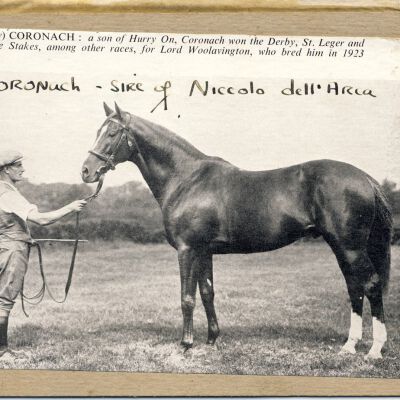 CORONACH : a son of Hurry On, Coronach won the Derby, St. Leger and
Stakes, among other races, for Lord Woolavington, who bred him in 1923
CORONACH - SIRE of Niccolo dell'Arca